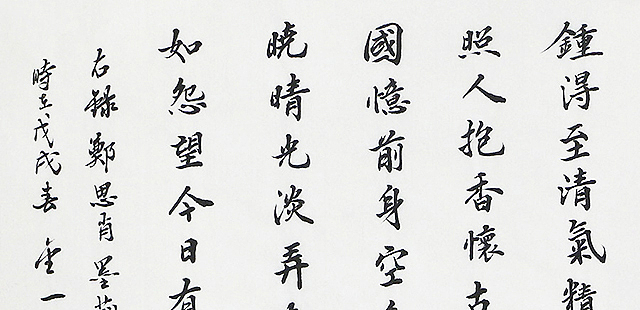 鍾得至清氣精
照人抱香懷古
國憶前身空
曉晴光淡弄
如怨望今日有
右録鄭思肖墨
時在戊戌春金一